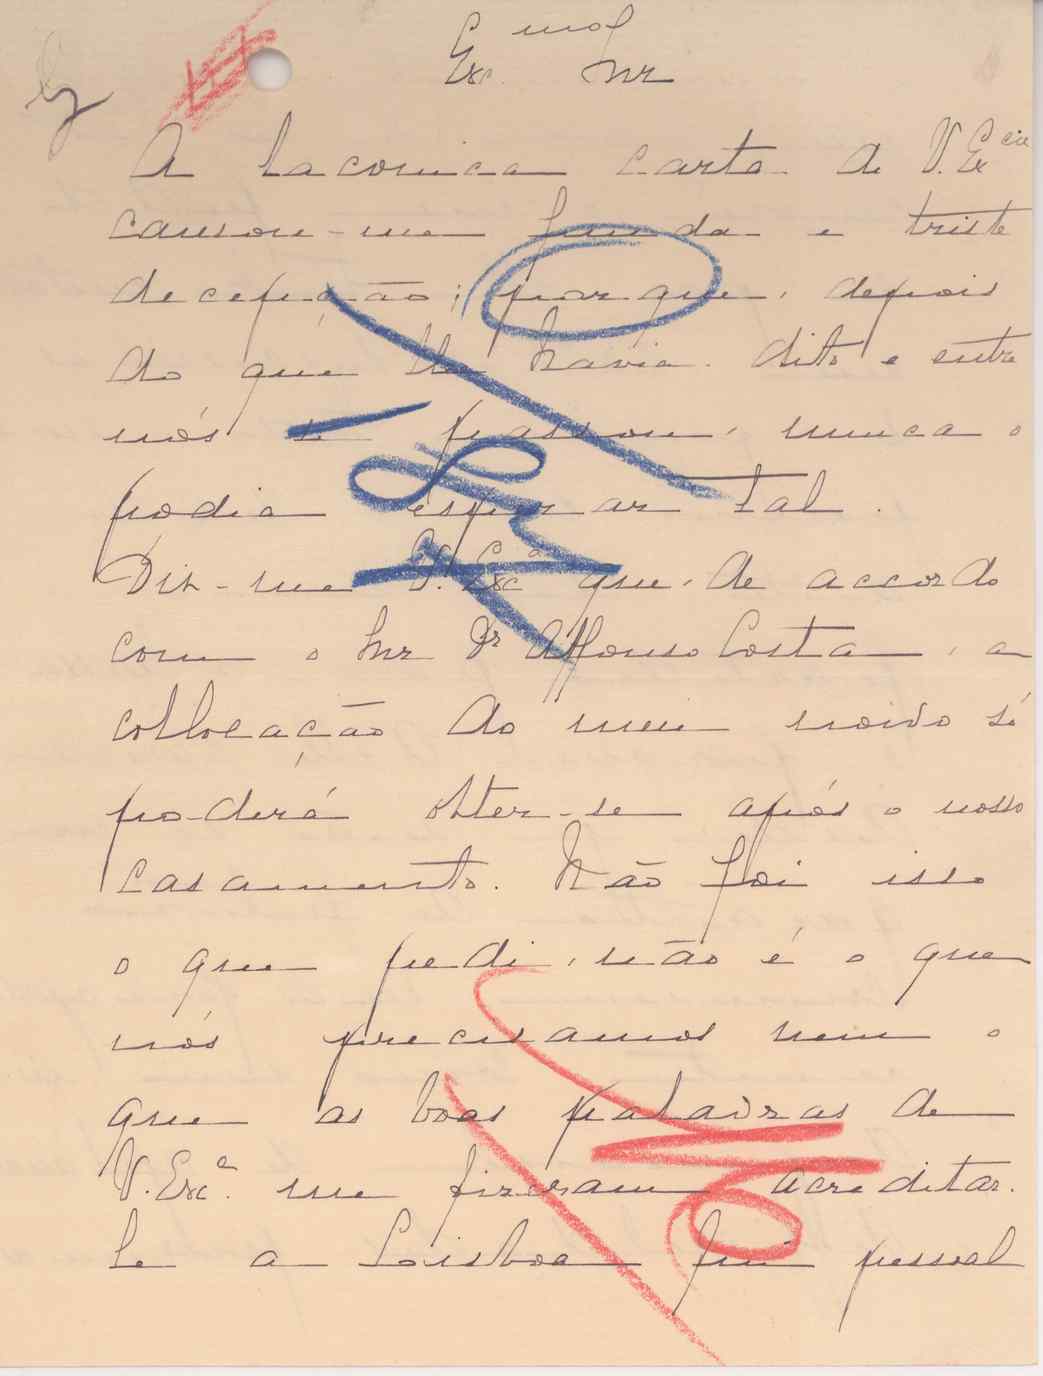 Exmo
Exc. Snr
A laconica carta de V. Excia
causou-me funda e triste
decepção; porque, depois
do que lhe havia dito e entre
nós se passou, nunca o
podia esperar tal.
Diz-me V. Exca que, de accordo
com o Snr Dr Affonso Costa, a
collocação do meu noivo só
poderá obter-se após o nosso
casamento. Não foi isso
o que pedi, não é o que
nós precisamos nem o
que as boas palavras de
V. Exca. me fizeram acreditar.
Se a Lisboa fui pessoal